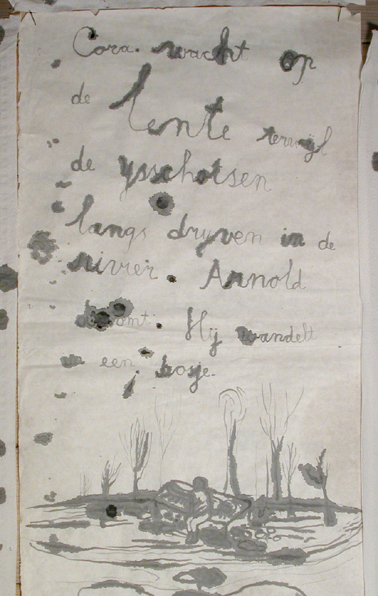 Cora wacht op
de
lente terwijl
de ysschotsen
langs dryven in de
rivier Arnold
droomt. Hij wandelt
een bosje.